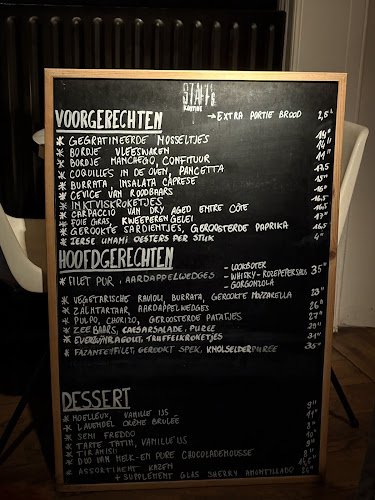 STAFF's
KANTINE
→ EXTRA PORTIE BROOD 2,5
VOORGERECHTEN
* GEGRATINEERDE MOSSELTJES 14
* BORDJE VLEESWAREN
* BORDJE MANCHEGO, CONFITUUR 11
* COQUILLES IN DE OVEN, PANCETTA 17,5
* BURRATA, INSALATA CAPRESE 15
* CEVICE VAN ROODBAARS 16
* INKTVISKROKETJES
* CARPACCIO VAN DRY AGED ENTRE CÔTE
* FOIE GRAS, KWEEPEREN GELEI 17
* GEROOKTE SARDIENTJES, GEROOSTERDE PAPRIKA 16,5
* IERSE UMAMI OESTERS PER STUK 4
HOOFDGERECHTEN
* FILET PUR, AARDAPPELWEDGES - LOOKBOTER 35
- WHISKY-ROZEPEPERSAUS
- GORGONZOLA
* VEGETARISCHE RAVIOLI, BURRATA, GEROOKTE MOZZARELLA 23
* ZALMTARTAAR, AARDAPPELWEDGES 26
* PULPO, CHORIZO, GEROOSTERDE PATATJES 27
* ZEEBAARS, CAESARSALADE, PUREE 29
* EVERZWIJNRAGOUT, TRUFFELKROKETJES 31
* FAZANTENFILET, GEROOKT SPEK, KNOLSELDERPUREE 35
DESSERT
* MOELLEUX, VANILLE IJS 9
* LAVENDEL CRÈME BRULÉE 11
* SEMI FREDDO 8
* TARTE TATIN, VANILLE IJS 10
* TIRAMISU 9
* DUO VAN MELK-EN PURE CHOCOLADEMOUSSE 8
* ASSORTIMENT KAZEN
+ SUPPLEMENT GLAS SHERRY AMONTILLADO